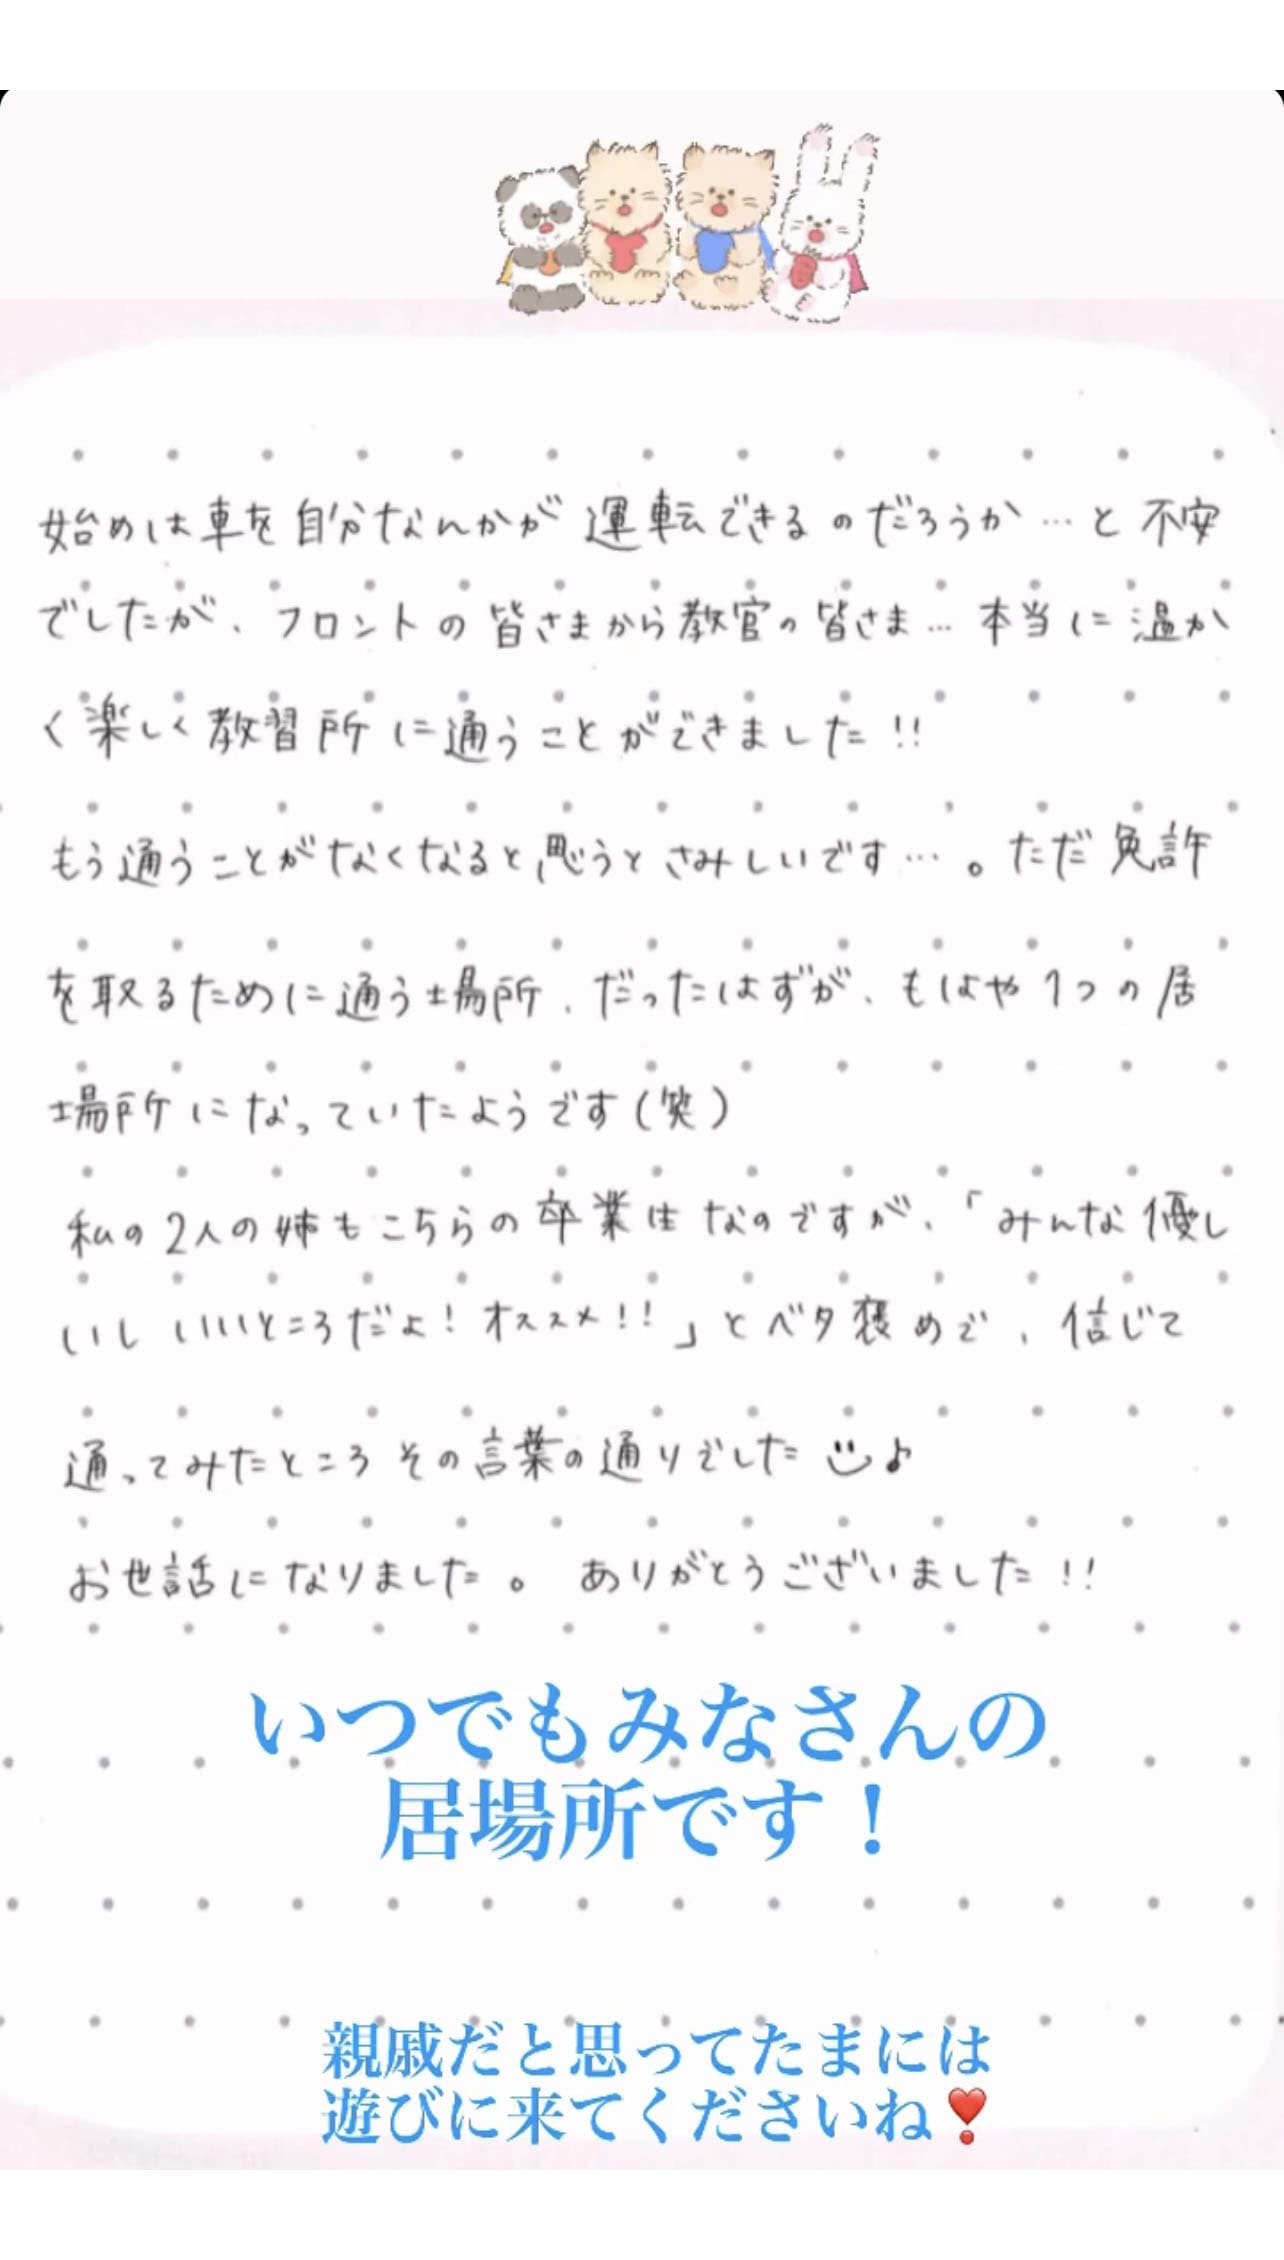 始めは車を自分なんかが運転できるのだろうか…と不安
でしたが、フロントの皆さまから教官の皆さま…本当に温か
く楽しく教習所に通うことができました!!
もう通うことがなくなると思うとさみしいです…。ただ免許
を取るために通う場所、だったはずが、もはや1つの居
場所になっていたようです(笑)
私の2人の姉もこちらの卒業生なのですが、「みんな優し
いし いいところだよ!オススメ!!」とベタ褒めで、信じて
通ってみたところその言葉の通りでした☺♪
お世話になりました。ありがとうございました!!
いつでもみなさんの
居場所です!
親戚だと思ってたまには
遊びに来てくださいね❣️